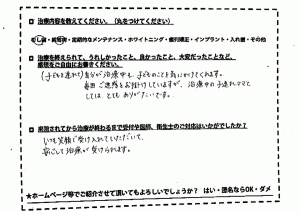 治療内容を教えてください。（丸をつけてください）
むし歯・歯周病・定期的なメンテナンス・ホワイトニング・歯列矯正・インプラント・入れ歯・その他
治療を終えられて、うれしかったこと、良かったこと、大変だったことなど、
感想をご自由にお書きください。
（子どもを連れて）自分が治療中も、子どものことを気にかけてくれます。
毎回ご迷惑をお掛けしていますが、治療中の子連れママと
しては、とてもありがたいです。
来院されてから治療が終わるまで受付や医師、衛生士のご対応はいかがでしたか？
いつも笑顔で受け入れていただいて、
安心して治療が受けられます。
★ホームページ等でご紹介させて頂いてもよろしいでしょうか？ はい・匿名ならOK・ダメ